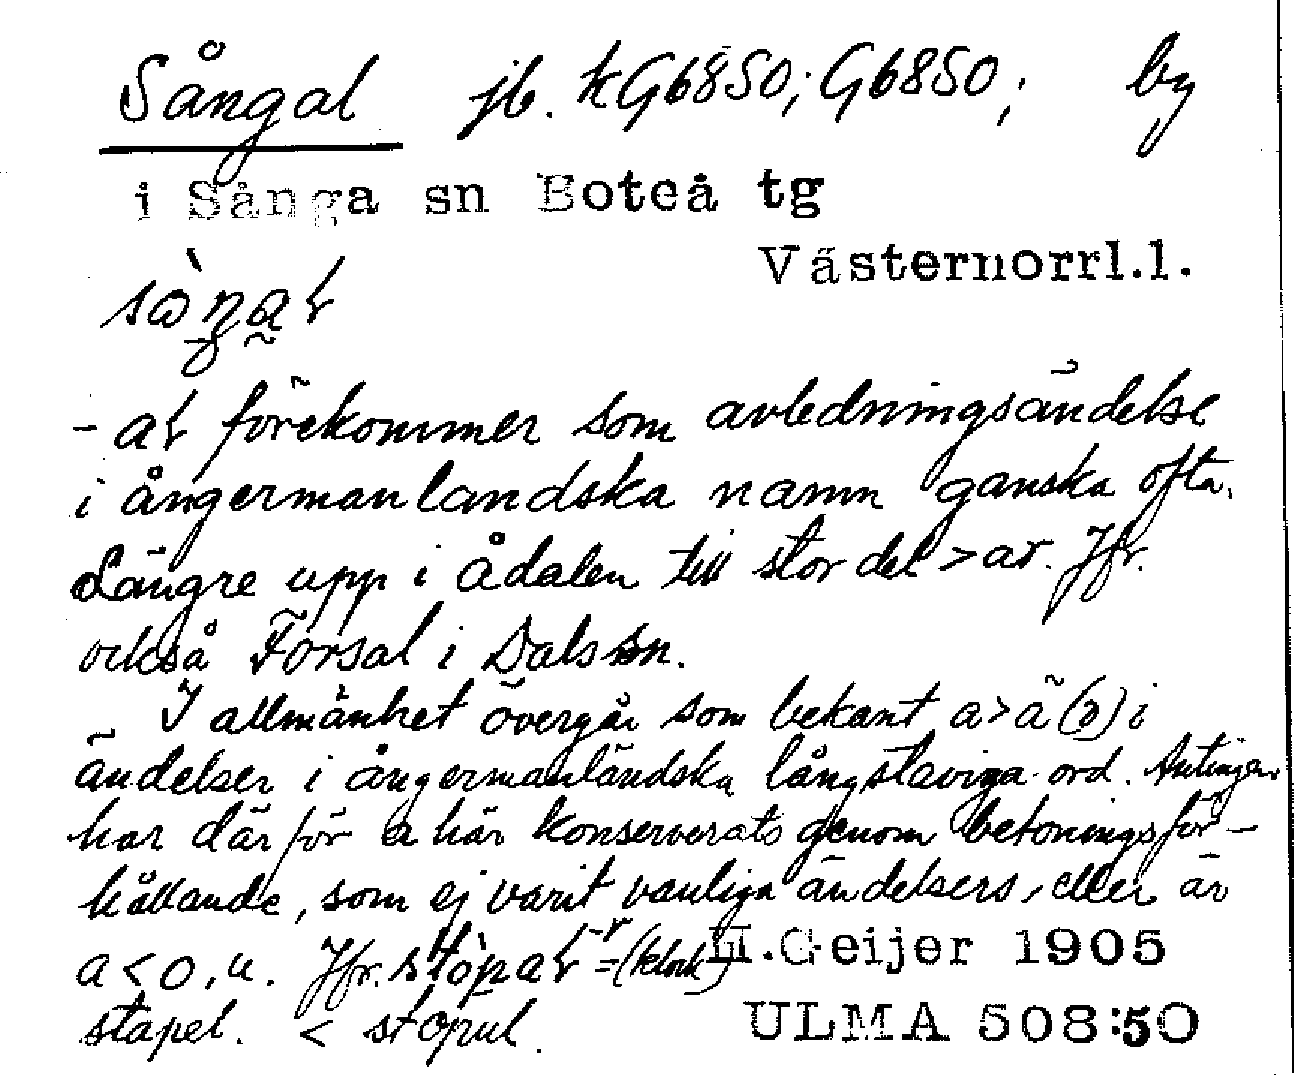 Sångal jb. KG6850; G6850; by
i Sånga sn Boteå tg
Västernorrl.l.
-al förekommer som avledningsändelse
i ångermanlandska namn ganska ofta.
Längre upp i Ådalen till stor del > ar. Jfr.
också Forsal i Dals sn.
I allmänhet övergår som bekant a>ä (ə) i
ändelser i ångermanländska långstaviga ord. Antingen
har därför a här konserverats genom betoningsför-
hållande, som ej varit vanliga ändelsers, eller är
a < o, u. Jfr. =(klock-)
stapel. < stopul.
H.Geijer 1905
ULMA 508:50